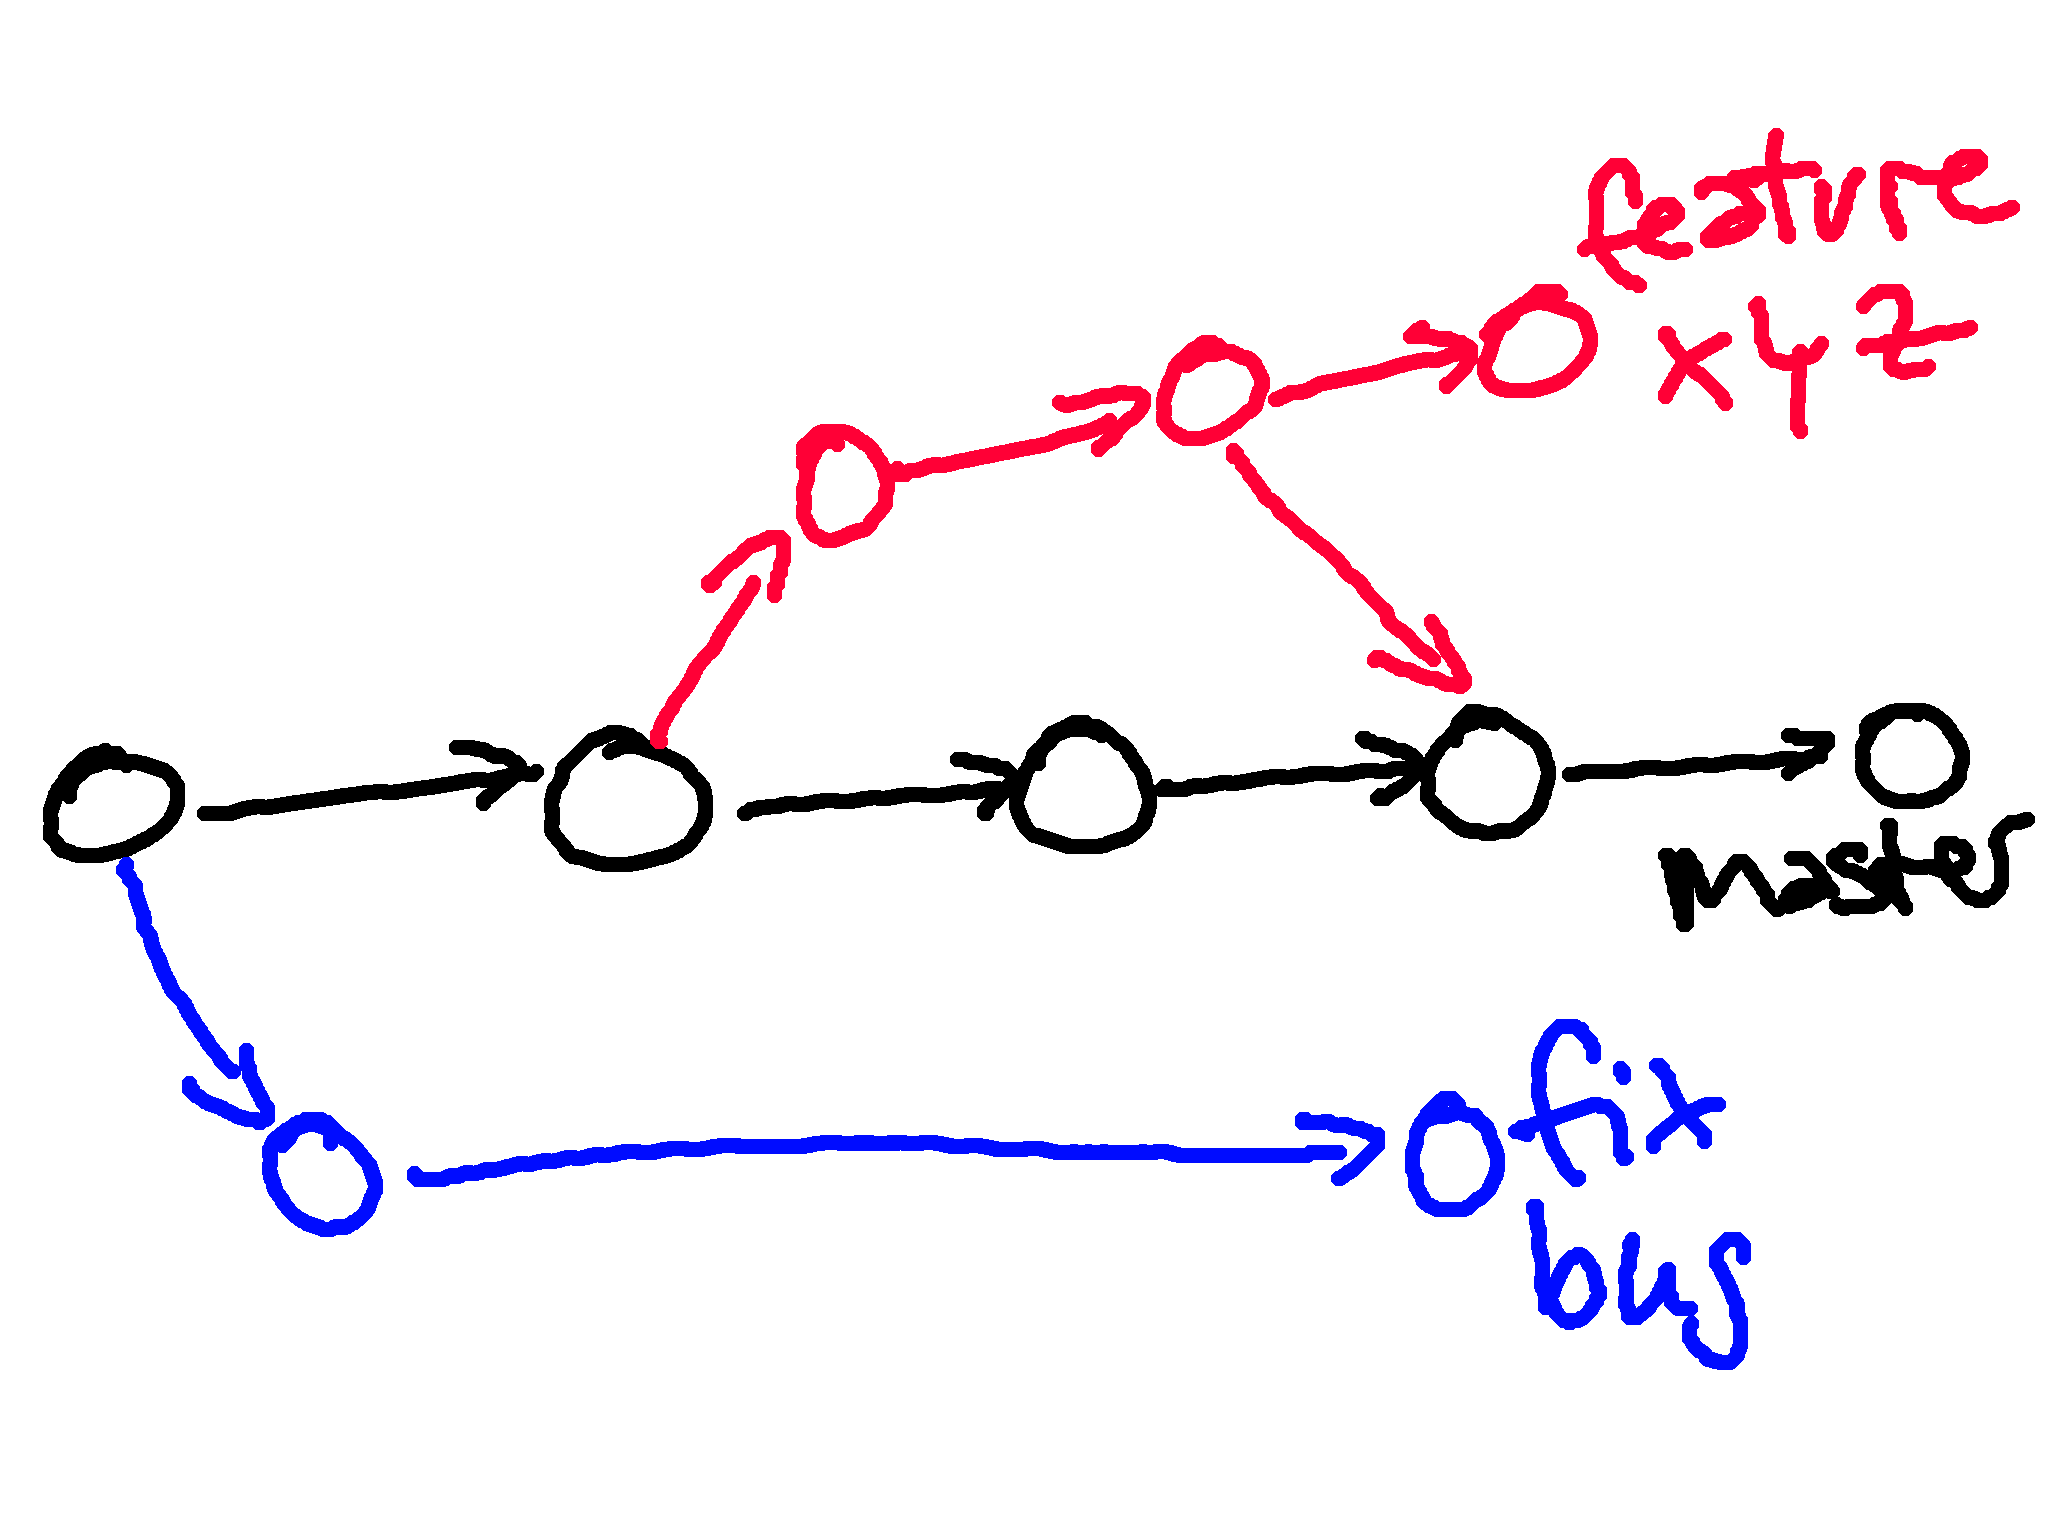 feature
xyz
master
fix
bug